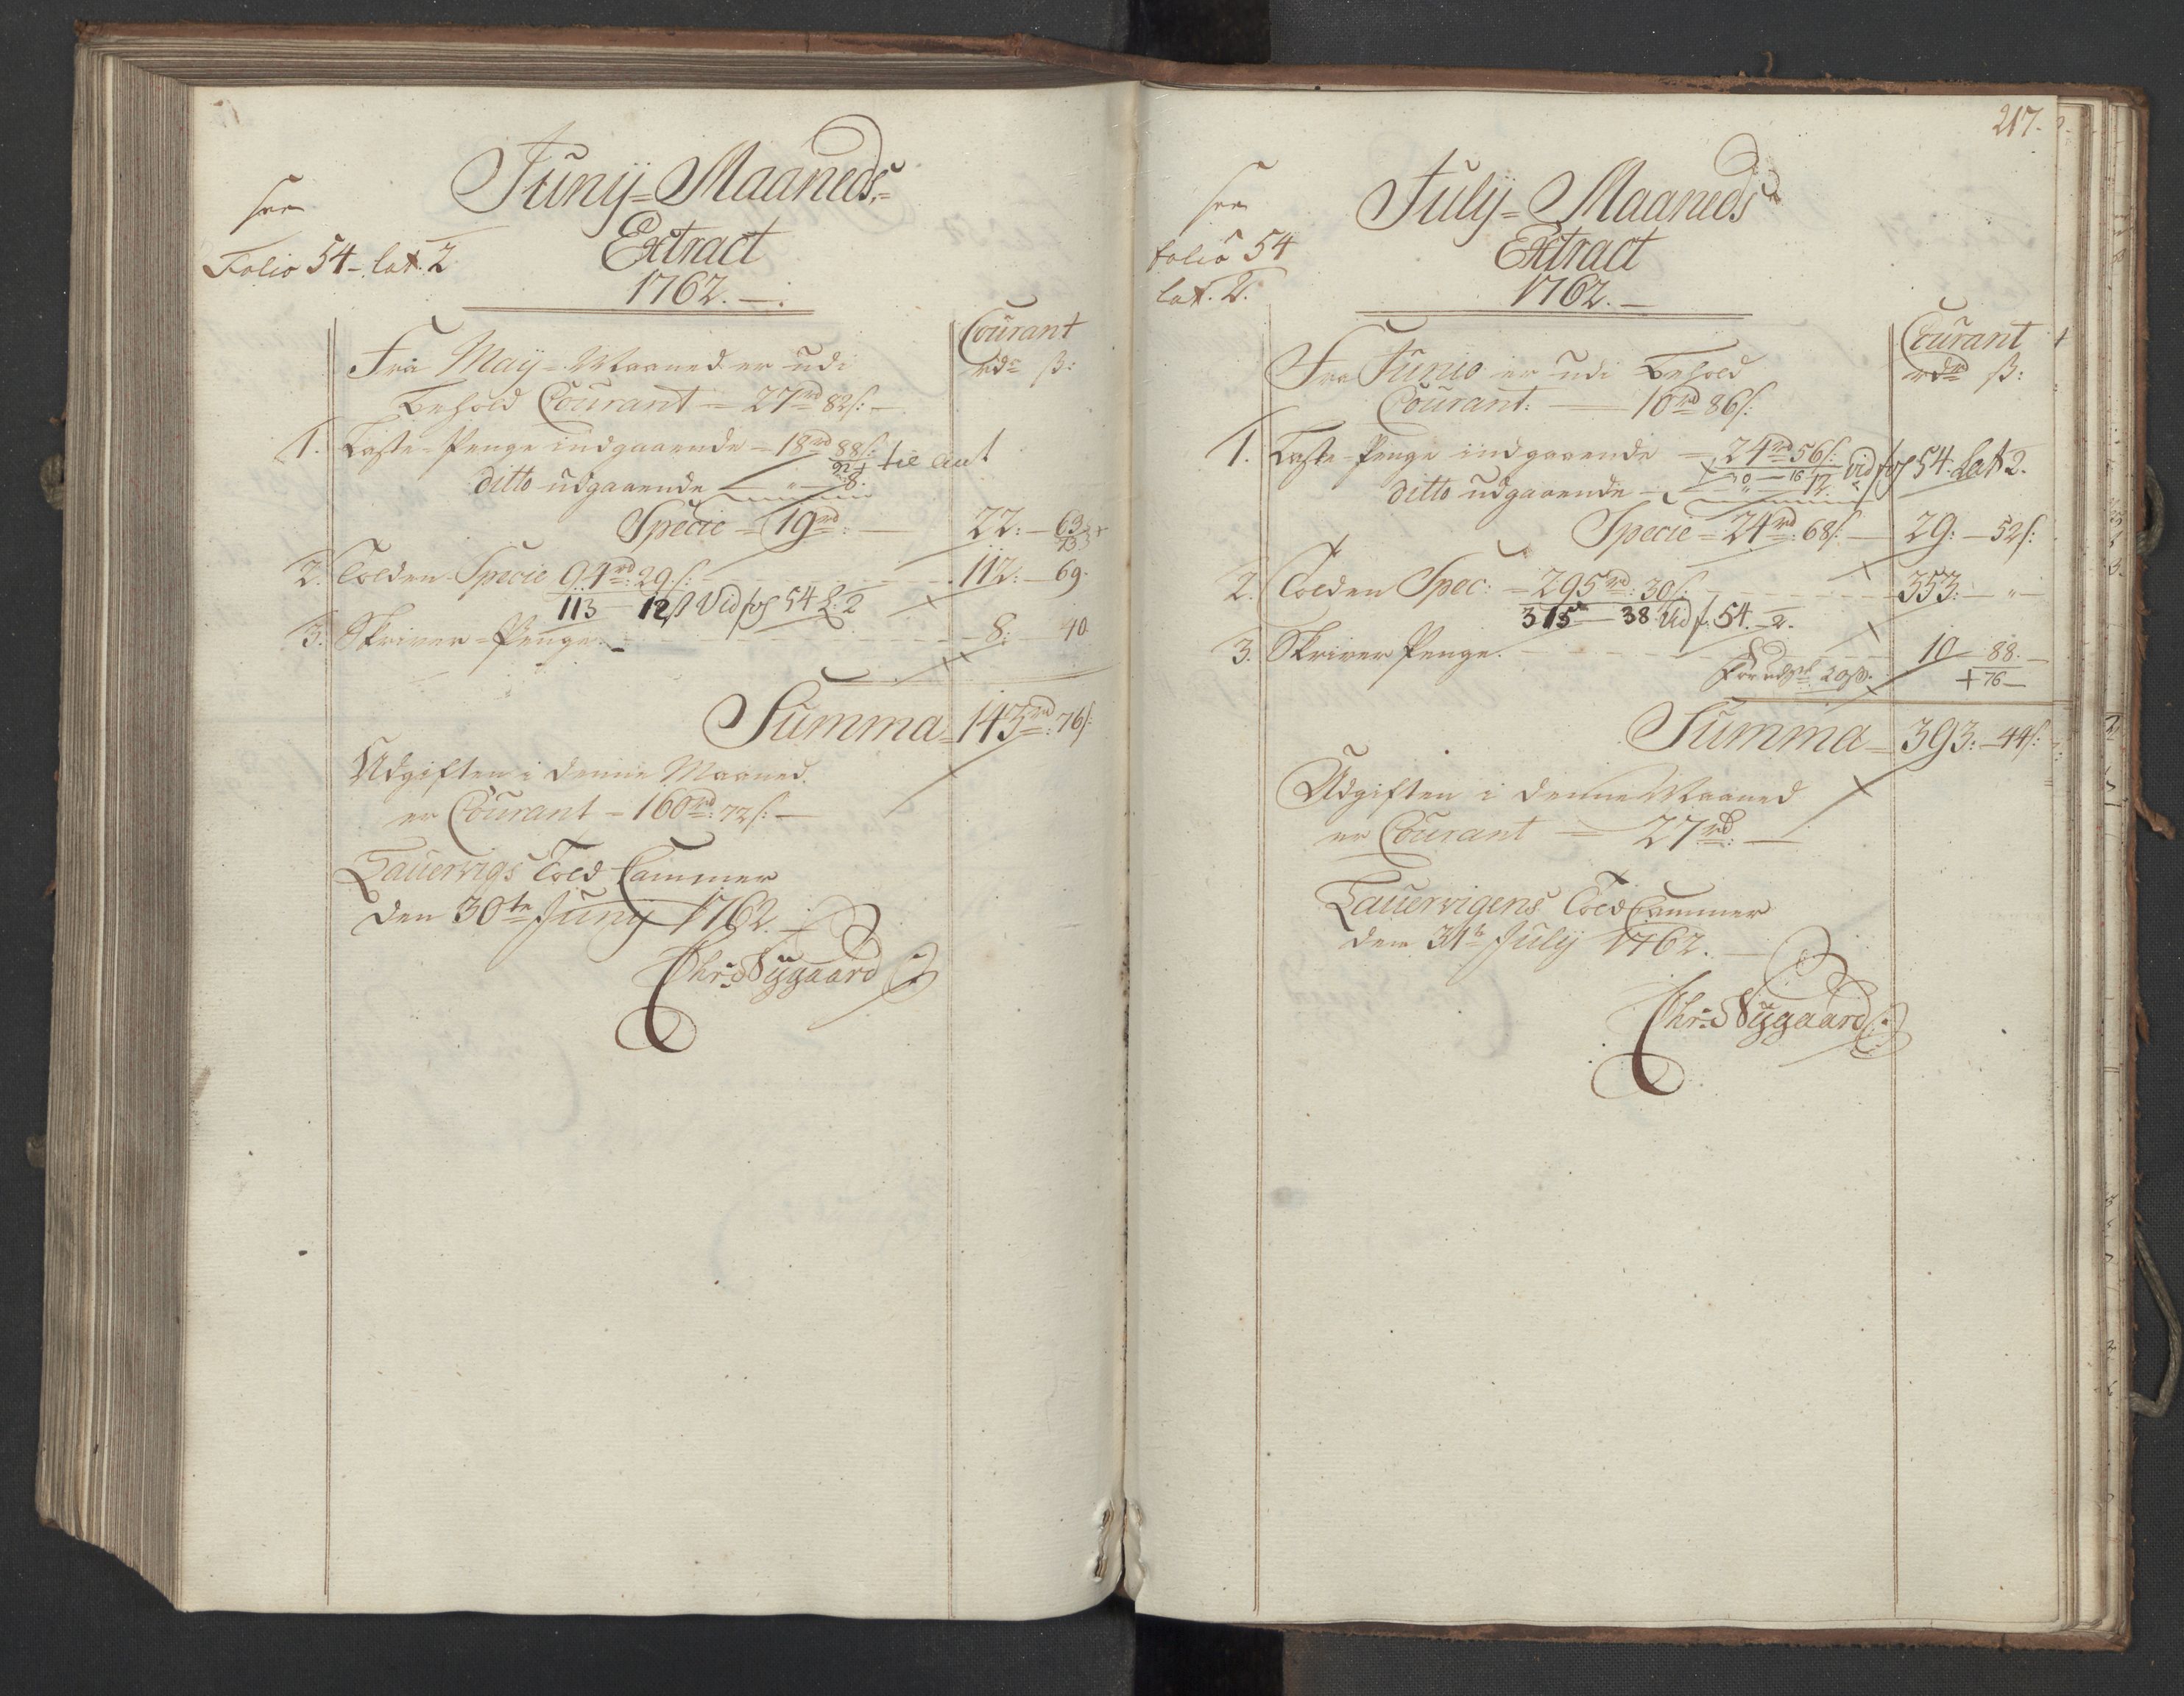 Junÿ=Maaneds=
Extract
1762.—.
see
Folio 54-. lat. 2
Courant
rdr ß:
Fra Maÿ=Maaned er udi
Behold Courant — 27rd 82ß:—
1. Laste-Penge indgaaende = 18rd 88ß:
92 +
ditto udgaaende — " — 8.
Specie = 19rd:— 22:— 63
2. Tolden Specie 94rd: 29ß:— 112:— 69.
113 — 12ß Vid fol 54 L: 2
3. Skriver=Penge.— 8: 40
Summa= 143rd: 76ß:
Udgiften i denne Maaned
er Courant = 160rd: 72ß:—
Lauervigs Told Cammer
den 30te Junÿ 1762.—
Chr: Nÿgaard
217.
Julÿ=Maaneds
Extract
1762.—
see
folio 54
lat. 2.
Courant
rdr ß:
Fra Junio er udi Behold
Courant:— 10rd 86ß:
1. Laste-Penge indgaaende = 24rd 56ß:
vid fol 54. Lat 2.
ditto udgaaende — " — 12.
Specie = 24rd: 68ß— 29:— 52ß:
2. Tolden Spec: = 295rd: 30ß:— 353:— "—
315 — 38 Vid f. 54.— 2.
3. Skriver Penge.— 10 88.—
+ 76—
Summa= 393:— 44ß:
Udgiften i denne Maaned
er Courant = 27rd:—
Lauervigens Told Cammer
den 31te Julÿ 1762.—
Chr: Nÿgaard